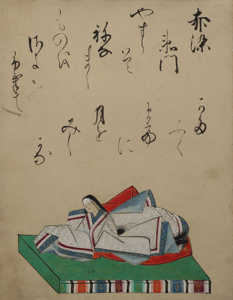 赤染
衛門
やすら
はて
ねな
まし
ものを
さよ
ふけて
かた
ふく
まて
の
月を
みし
かな